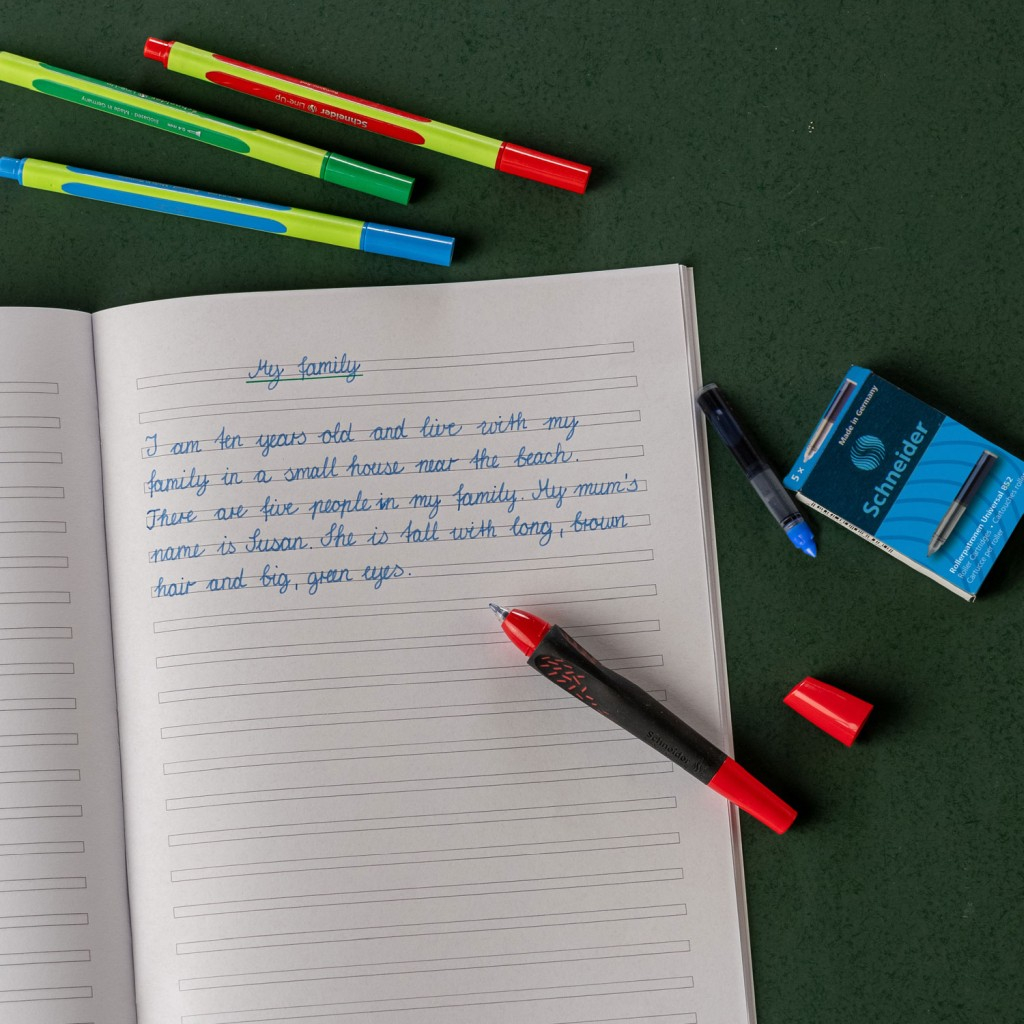 Schneider Line-Up
Made in Germany
My family
I am ten years old and live with my
family in a small house near the beach.
There are five people in my family. My mum's
name is Susan. She is tall with long, brown
hair and big, green eyes.
Schneider
5 x
Made in Germany
Schneider
Rollerpatronen Universal 852
Roller Cartridges • Cartouches
Cartucce per roller